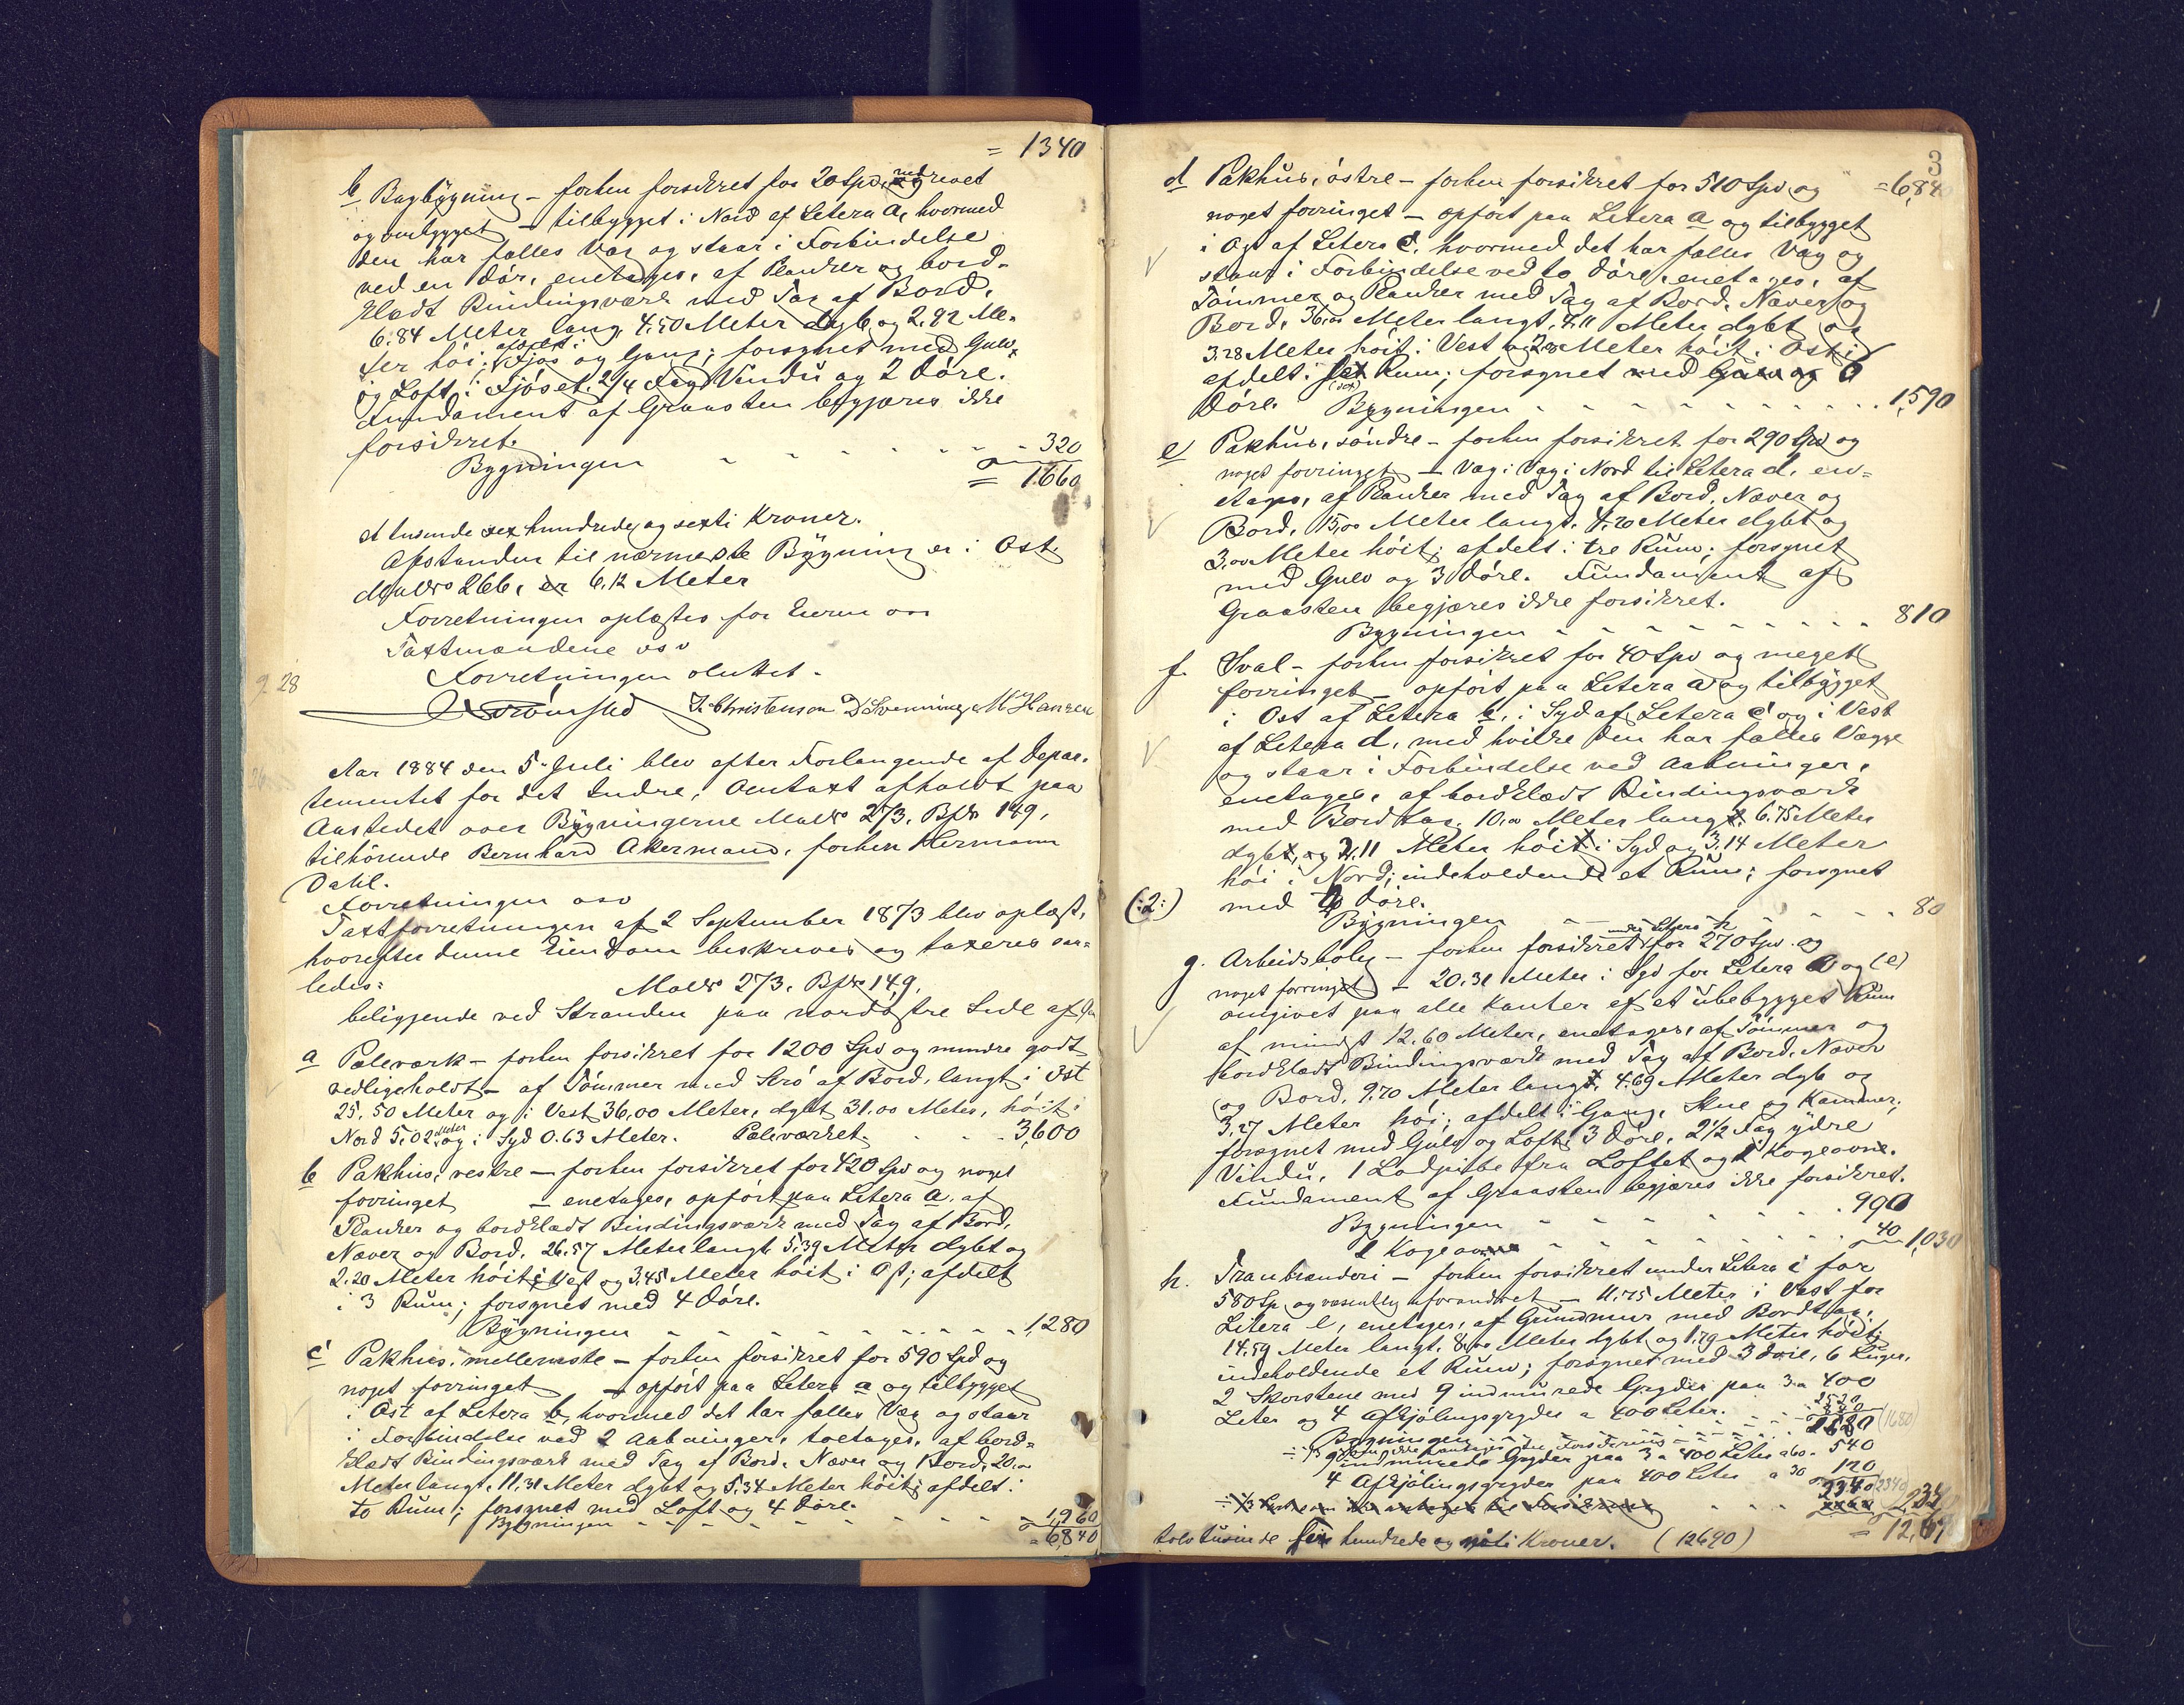 = 1340
b Bagbygning – forhen forsikret for 20 Spd, nedrevet
og ombygget – tilbygget i Nord af Litera a, hvormed
den har fælles Væg og staar i Forbindelse
ved en Dör, enetages, af Planker og bord-
klædt Bindingsværk med Tag af Bord,
6.84 Meter lang, 4.50 Meter dyb og 2.82 Me-
ter höi; afdelt i Fjös og Gang; forsynet med Gulv
og Loft i Fjöset, 2/4 Fag Vindu og 2 Döre.
Fundament af Graasten begjæres ikke
forsikret.
Bygningen - - - - - - 320
= 1660
et tusende sex hundrede og sexti Kroner.
Afstanden til nærmeste Bygning er i Öst
Matr No 266, er 6.12 Meter
Forretningen oplæstes for Eieren og
Taxtmændene osv
Forretningen sluttet.
g. 28
Strömsted J. Christenson D Svenning M Hansen
Aar 1884 den 5 Juli blev efter Forlangende af Depar-
tementet for det Indre, Omtaxt afholdt paa
Aastedet over Bygningerne Matr No 273, Bp No 149,
tilhörende Bernhard Akermand, forhen Hermann
Dahl.
Forretningen osv
Taxtforretningen af 2 September 1873 blev oplæst,
hvorefter denne Eiendom beskrives og taxeres saa-
ledes:
Matr No 273. Bp No 149.
beliggende ved Stranden paa nordöstre Side af
a Paleværk – forhen forsikret for 1200 Spd og mindre godt
vedligeholdt – af Tömmer med Skrö af Bord, langt i Öst
25.50 Meter og i Vest 36.00 Meter, dybt 31.00 Meter, höit i
Nord 5.02 Meter og i Syd 0.63 Meter. Paleværket - - - 3,600
b Pakhus, vestre – forhen forsikret for 420 Spd og noget
forringet – enetages, opfört paa Litera a, af
Planker og bordklædt Bindingsværk med Tag af Bord,
Næver og Bord, 26.57 Meter langt, 5.39 Meter dybt og
2.20 Meter höit i Vest og 3.45 Meter höit i Öst; afdelt
i 3 Rum; forsynet med 4 Döre.
Bygningen - - - - - - - - - 1,280
c Pakhus, mellemste – forhen forsikret for 590 Spd og
noget forringet – opfört paa Litera a og tilbygget
i Öst af Litera b, hvormed det har fælles Væg og staar
i Forbindelse ved 2 Aabninger, toetages, af bord-
klædt Bindingsværk med Tag af Bord, Næver og Bord, 20.
Meter langt, 11.31 Meter dybt og 5.34 Meter höit; afdelt i
to Rum; forsynet med Loft og 4 Döre.
Bygningen - - - - - - - - 1,960
= 6,840
3
d Pakhus, östre – forhen forsikret for 510 Spd og = 6,840
noget forringet – opfört paa Litera a og tilbygget
i Öst af Litera c, hvormed det har fælles Væg og
staar i Forbindelse ved to Döre, enetages, af
Tömmer og Planker med Tag af Bord, Næver og
Bord, 36. Meter langt, 4.11 Meter dybt og
3.28 Meter höit i Vest og Meter höit i Öst;
afdelt i Rum; forsynet med Gulv og
Döre. Bygningen - - - - - - - - - 1,590
e Pakhus, söndre – forhen forsikret for 290 Spd og
noget forringet – Væg i Væg i Nord til Litera d, en-
etages, af Planker med Tag af Bord, Næver og
Bord, 15.00 Meter langt, 4.20 Meter dybt og
3.00 Meter höit; afdelt i tre Rum; forsynet
med Gulv og 3 Döre. Fundament af
Graasten begjæres ikke forsikret.
Bygningen - - - - - - - - - 810
f. Sval – forhen forsikret for 40 Spd og meget
forringet – opfört paa Litera a og tilbygget
i Öst af Litera b, i Syd af Litera c og i Vest
af Litera d, med hvilke den har fælles Vægge
og staar i Forbindelse ved Aabninger,
enetages, af bordklædt Bindingsværk
med Bordtag, 10. Meter lang, 6.75 Meter
dyb, og 2.11 Meter höi i Syd og 3.14 Meter
höi i Nord; indeholdende et Rum; forsynet
(:2:) med Döre.
Bygningen - - - - - 80
g. Arbeidsbolig – forhen forsikret under Litera h for 270 Spd og
noget forringet – 20.31 Meter i Syd for Litera og (e)
omgivet paa alle Kanter af et ubebygget Rum
af mindst 12.60 Meter, enetages, af Tömmer og
bordklædt Bindingsværk med Tag af Bord, Næver
og Bord, 9.70 Meter lang, 4.69 Meter dyb og
3.27 Meter höi; afdelt i Gang, Stue og Kammer;
forsynet med Gulv og Loft, 3 Döre, 2 1/2 Fag ydre
Vindu, 1 Ladpibe fra Loftet og 1 Kogeovn.
Fundament af Graasten begjæres ikke forsikret.
Bygningen - - - - - - 990
1 Kogeovn - - - - - - 40 1,030
h. Tranbrænderi – forhen forsikret under Litera i for
580 Sp og væsentlig uforandret – 11.75 Meter i Vest for
Litera e, enetages, af Grundmur med Bordtag,
14.59 Meter langt, 8. Meter dybt og 1.79 Meter höit;
indeholdende et Rum; forsynet med 3 Döre, 6 Luger,
2 Skorstene med 9 indmurede Gryder paa 3 a 400
Liter og 4 Afkjölingsgryder a 400 Liter.
Bygningen - - - (1680)
9 indmurede Gryder paa 3 a 400 Liter a 60. 540
4 Afkjölingsgryder paa 400 Liter a 30 120
2340 (2340)
tolv tusinde sex hundrede og niti Kroner. (12690)